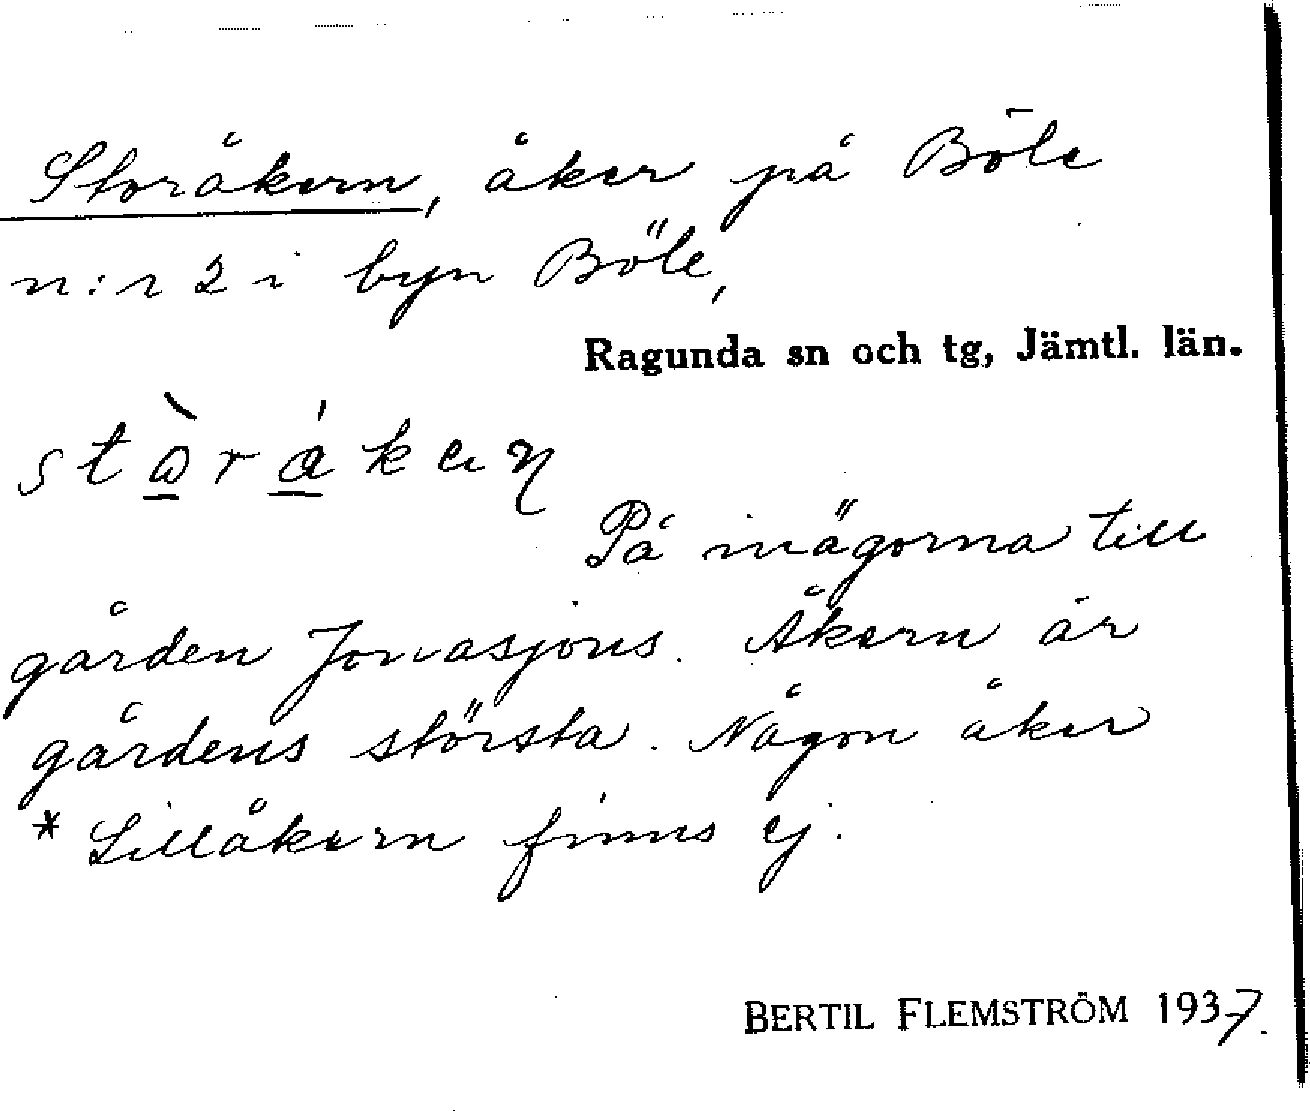 Storåkern, åker på Böle
n:r 2 i byn Böle,
Ragunda sn och tg, Jämtl. län.
På inägorna till
gården Jonasjöns. Åkern är
gårdens största. Någon åker
* Lillåkern finns ej.
BERTIL FLEMSTRÖM 1937.